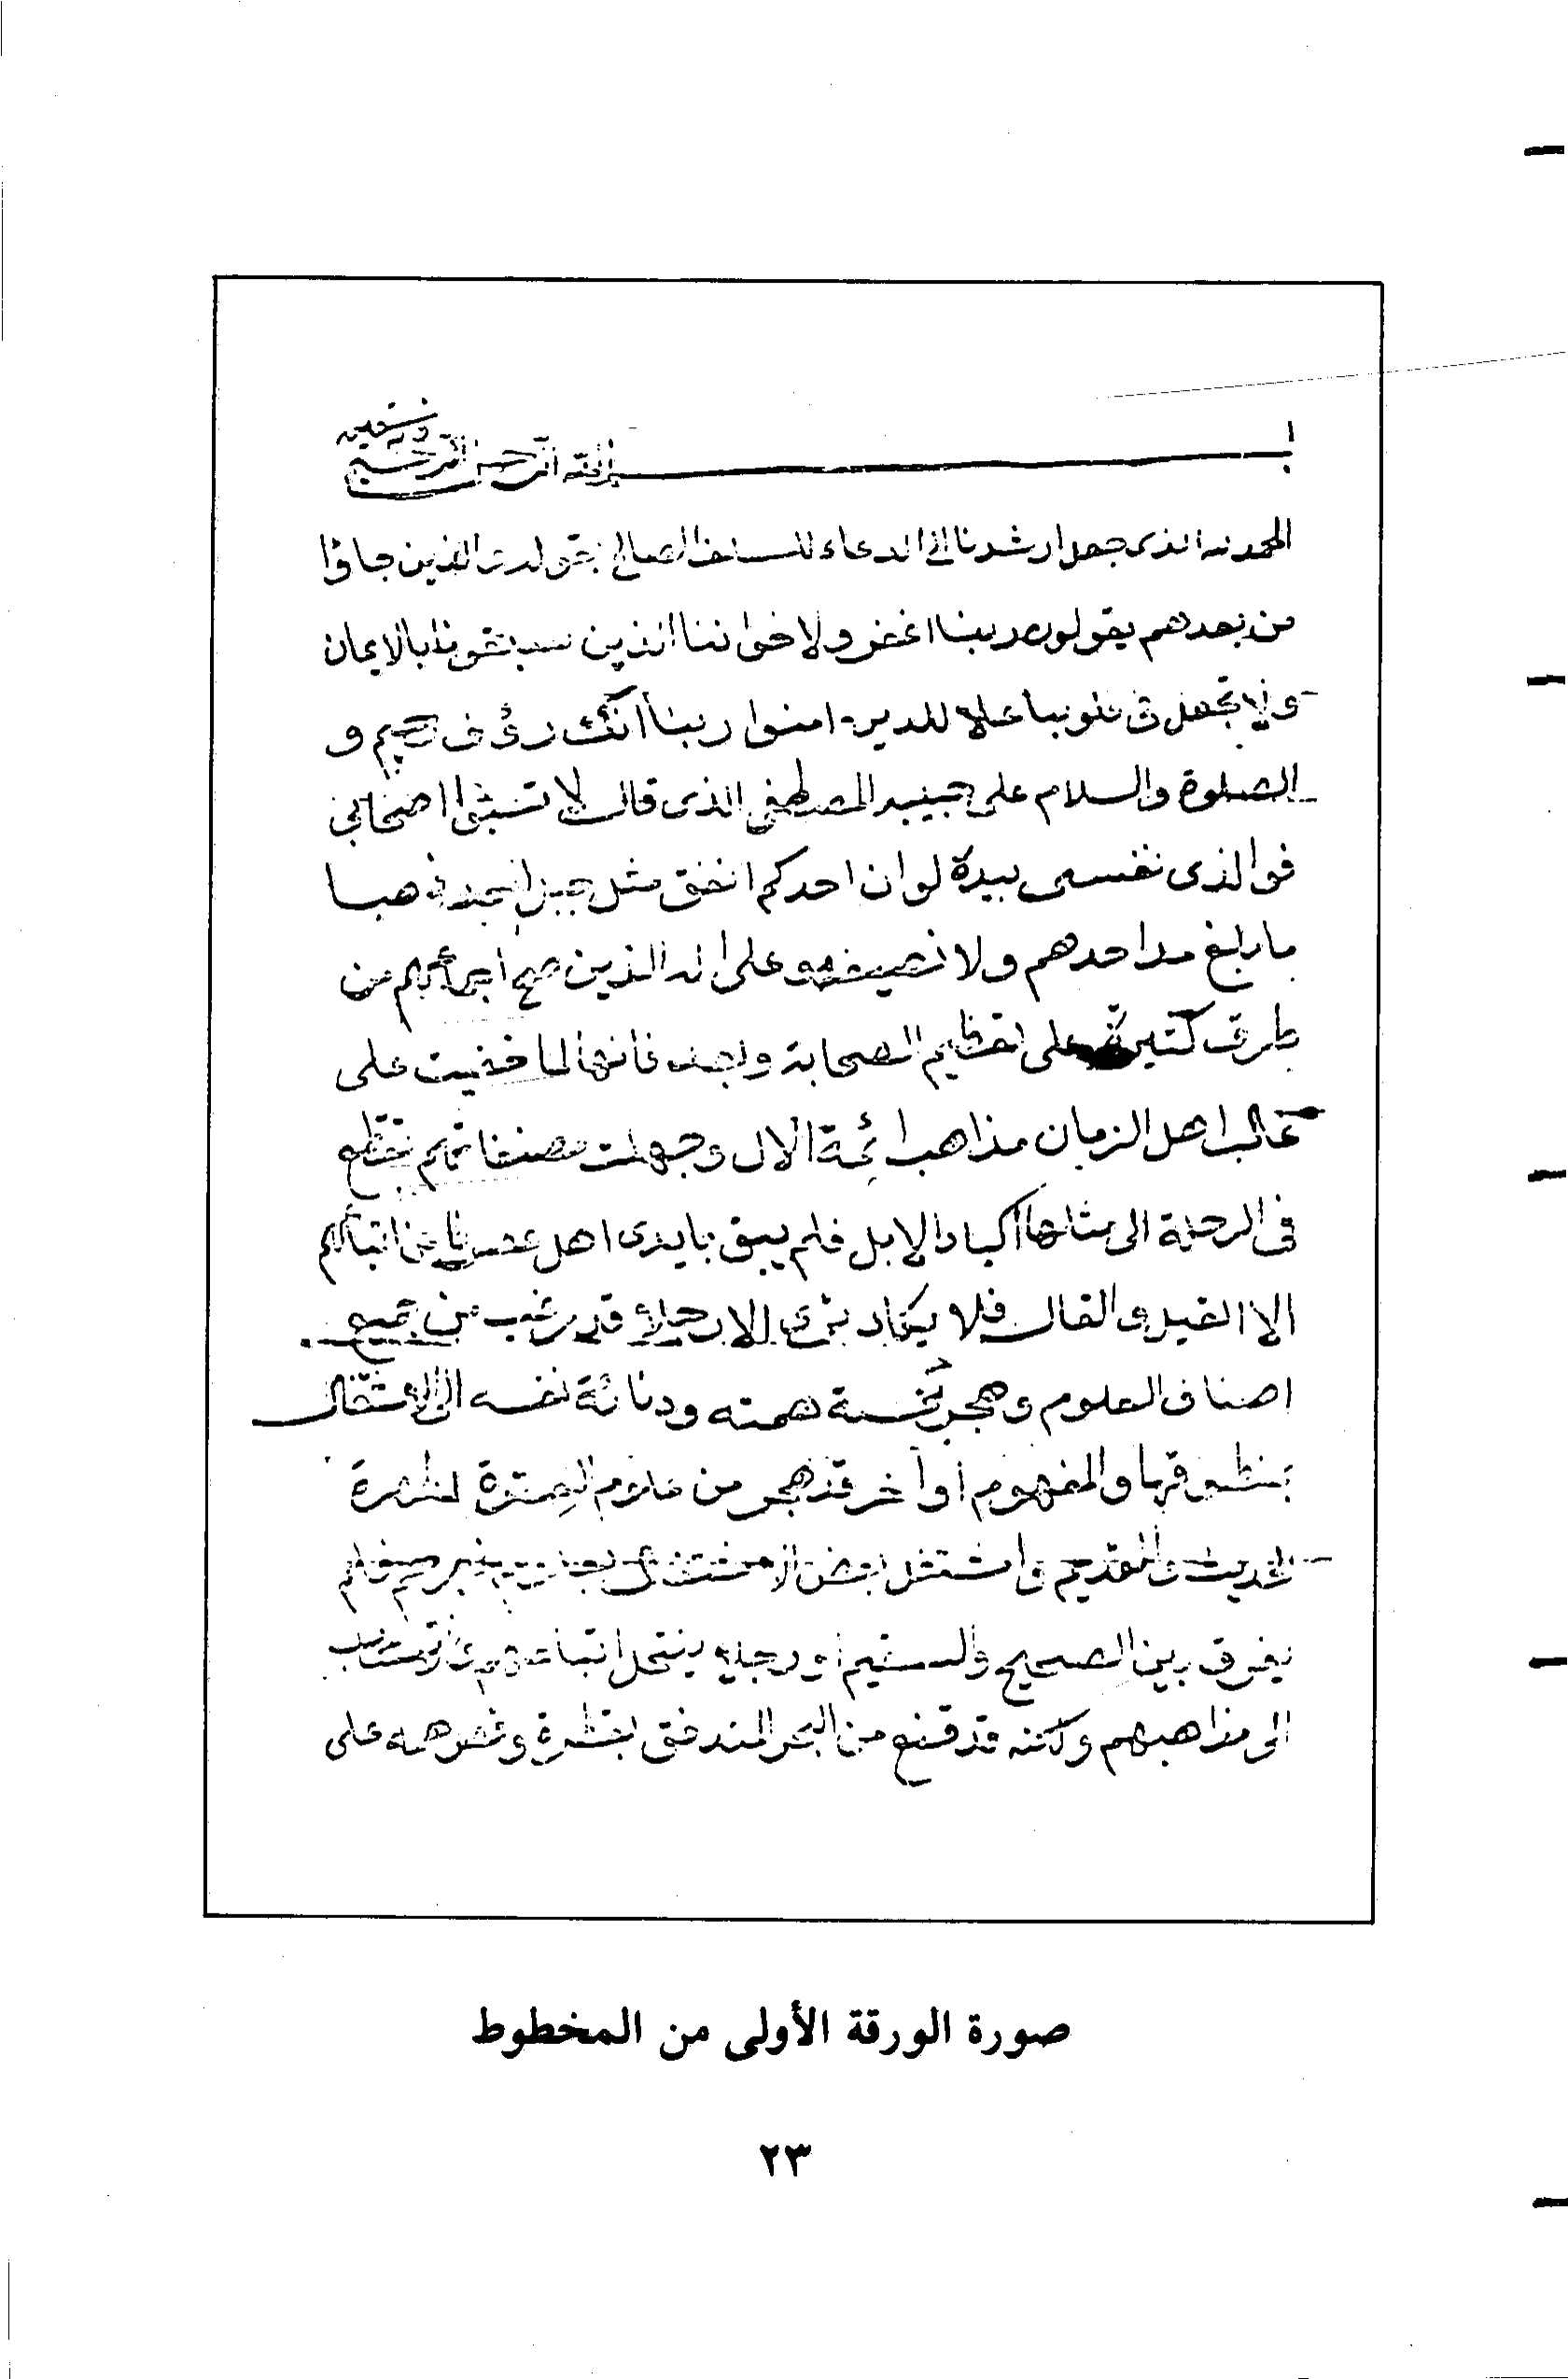 بسم الله الرحمن الرحيم وبه نستعين
الحمد لله الذى ارشدنا الى الدعاء للسلف الصالح بقوله والذين جاؤا
من بعدهم يقولون ربنا اغفر ولاخواننا الذين سبقونا بالايمان
ولا تجعل فى قلوبنا غلا للذين امنوا ربنا انك رؤف رحيم و
الصلوة والسلام على حبيبه المصطفى الذى قال لا تسبوا اصحابى
فوالذى نفسى بيده لو ان احدكم انفق مثل جبل احد ذهبا
ما بلغ مد احدهم ولا نصيفه وعلى اله الذين صح اجماعهم من
طرق كثيرة على تعظيم الصحابة وبعد فانها لما خفيت على
غالب اهل الزمان مذاهب ائمة الال وجهلت مصنفاتهم تقطع
فى الرحلة الى مثلها اكباد الابل فلم يبق بايدى اهل عصرنا من اتباعهم
الا القيل والقال فلا يكاد يرى الا رجلا قد رغب عن جميع
اصناف العلوم وهجر لخسة همته ودنائة نفسه الى الاشتغال
بمنطوقها والمفهوم أو آخر قد هجر من علوم العترة المطهرة
الحديث والقديم واشتغل ببعض فلم
يفرق بين الصحيح والسقيم او رجلا ينتحل اتباعهم
الى مذاهبهم ولكنه قد قنع من البحر المتدفق بقطرة وقصر همه على
صورة الورقة الأولى من المخطوط
٢٣